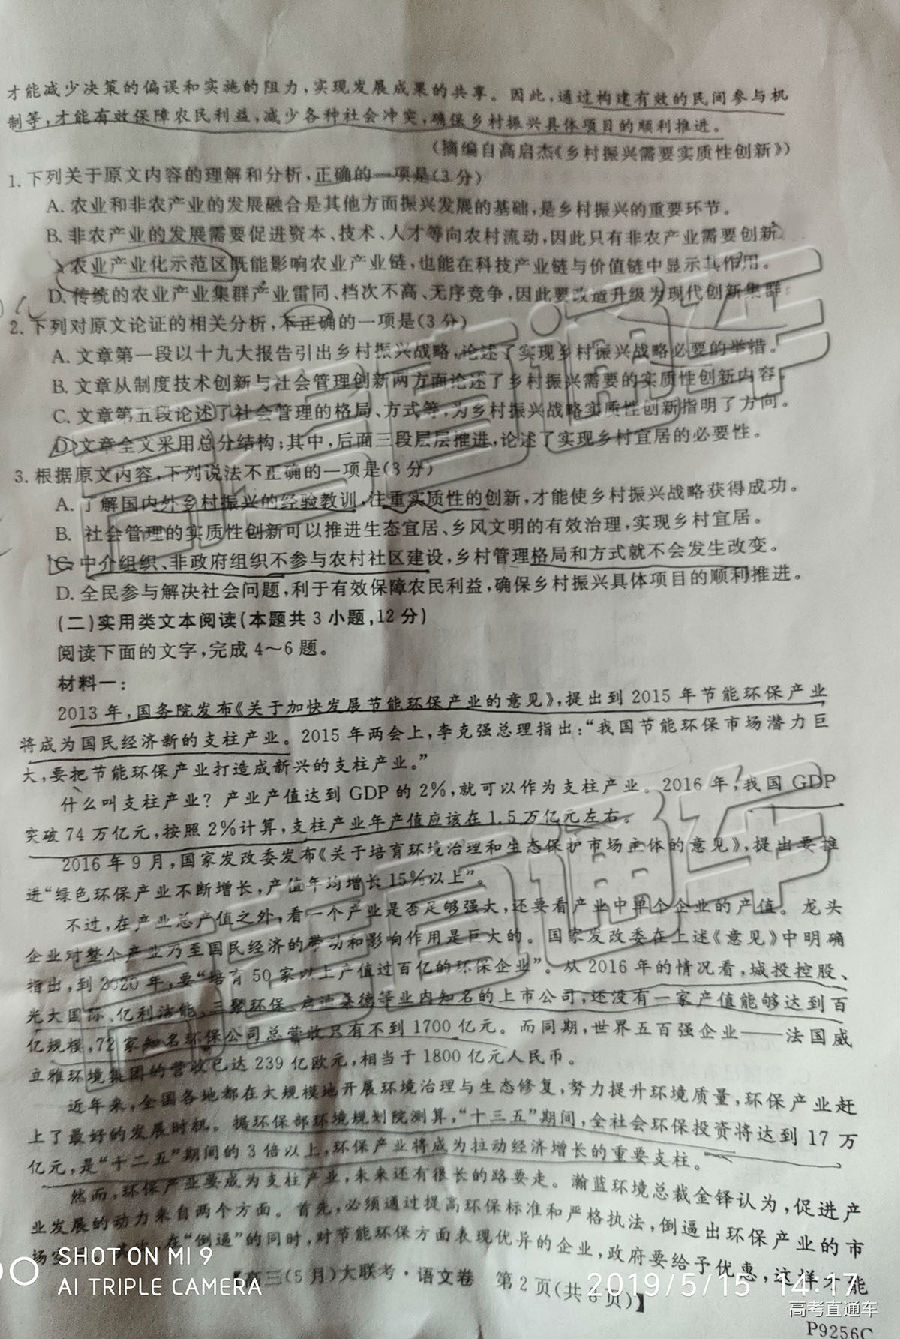 才能减少决策的偏误和实施的阻力,实现发展成果的共享。因此,通过构建有效的民间参与机
制等,才能有效保障农民利益,减少各种社会冲突,确保乡村振兴具体项目的顺利推进。
(摘编自高启杰《乡村振兴需要实质性创新》)
1.下列关于原文内容的理解和分析,正确的一项是(3分)
A.农业和非农产业的发展融合是其他方面振兴发展的基础,是乡村振兴的重要环节。
B.非农产业的发展需要促进资本、技术、人才等向农村流动,因此只有非农产业需要创新。
农业产业化示范区既能影响农业产业链,也能在科技产业链与价值链中显示其作用。
D.传统的农业产业集群产业雷同、档次不高、无序竞争,因此要改造升级为现代创新集群。
2.下列对原文论证的相关分析,不正确的一项是(3分)
A.文章第一段以十九大报告引出乡村振兴战略,论述了实现乡村振兴战略必要的举措。
B.文章从制度技术创新与社会管理创新两方面论述了乡村振兴需要的实质性创新内容。
C.文章第五段论述了社会管理的格局、方式等,为乡村振兴战略实质性创新指明了方向。
D.文章全文采用总分结构;其中,后面三段层层推进,论述了实现乡村宜居的必要性。
3.根据原文内容,下列说法不正确的一项是(3分)
A.了解国内外乡村振兴的经验教训,注重实质性的创新,才能使乡村振兴战略获得成功。
B.社会管理的实质性创新可以推进生态宜居、乡风文明的有效治理,实现乡村宜居。
C.中介组织、非政府组织不参与农村社区建设,乡村管理格局和方式就不会发生改变。
D.全民参与解决社会问题,利于有效保障农民利益,确保乡村振兴具体项目的顺利推进。
(二)实用类文本阅读(本题共3小题,12分)
阅读下面的文字,完成4~6题。
材料一:
2013年,国务院发布《关于加快发展节能环保产业的意见》,提出到2015年节能环保产业
将成为国民经济新的支柱产业。2015年两会上,李克强总理指出:“我国节能环保市场潜力巨
大,要把节能环保产业打造成新兴的支柱产业。”
什么叫支柱产业?产业产值达到GDP的2%,就可以作为支柱产业。2016年,我国GDP
突破74万亿元,按照2%计算,支柱产业年产值应该在1.5万亿元左右。
2016年9月,国家发改委发布《关于培育环境治理和生态保护市场主体的意见》,提出要推
进“绿色环保产业不断增长,产值年均增长15%以上”。
不过,在产业总产值之外,看一个产业是否足够强大,还要看产业中单个企业的产值。龙头
企业对整个产业乃至国民经济的带动和影响作用是巨大的。国家发改委在上述《意见》中明确
指出,到2020年,要“培育50家以上产值过百亿的环保企业”。从2016年的情况看,城投控股、
光大国际、亿利洁能、三聚环保、启迪桑德等业内知名的上市公司,还没有一家产值能够达到百
亿规模,72家知名环保公司总营收只有不到1700亿元。而同期,世界五百强企业——法国威
立雅环境集团的营收已达239亿欧元,相当于1800亿元人民币。
近年来,全国各地都在大规模地开展环境治理与生态修复,努力提升环境质量,环保产业赶
上了最好的发展时机。据环保部环境规划院测算,“十三五”期间,全社会环保投资将达到17万
亿元,是“十二五”期间的3倍以上,环保产业将成为拉动经济增长的重要支柱。
然而,环保产业要成为支柱产业,未来还有很长的路要走。瀚蓝环境总裁金铎认为,促进产
业发展的动力来自两个方面。首先,必须通过提高环保标准和严格执法,倒逼出环保产业的市
场空 在“倒逼”的同时,对节能环保方面表现优异的企业,政府要给予优惠,这样才能
【高三(5月)大联考·语文卷 第2页(共8页)】
P9256C
SHOT ON MI 9
AI TRIPLE CAMERA
2019/5/15 14:17
高考直通车
高考直通车
高考直通车